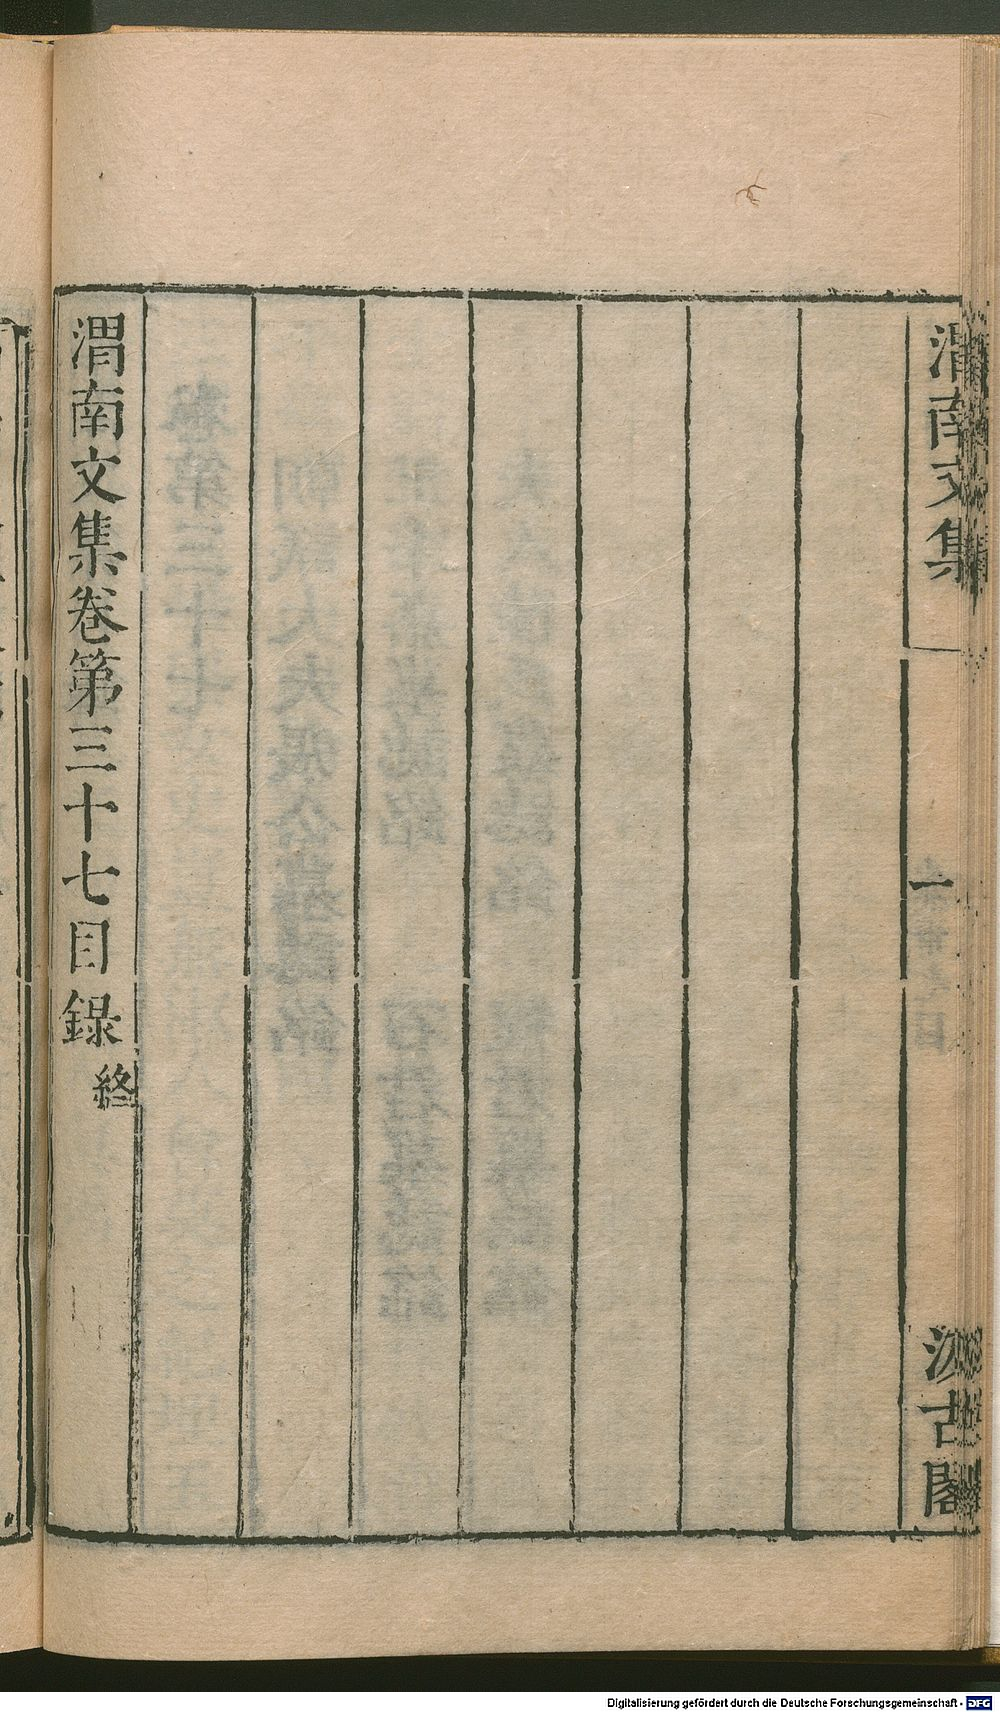 渭南文集
一
汲古閣
渭南文集卷第三十七目錄終
Digitalisierung gefördert durch die Deutsche Forschungsgemeinschaft - DFG